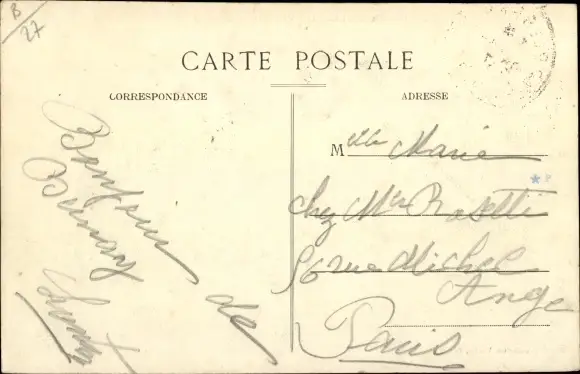 B/27
CARTE POSTALE
CORRESPONDANCE
ADRESSE
Bonjour de
Bernay
Melle Marie
chez Mr Rosetti
56 rue Michel
Ange
Paris